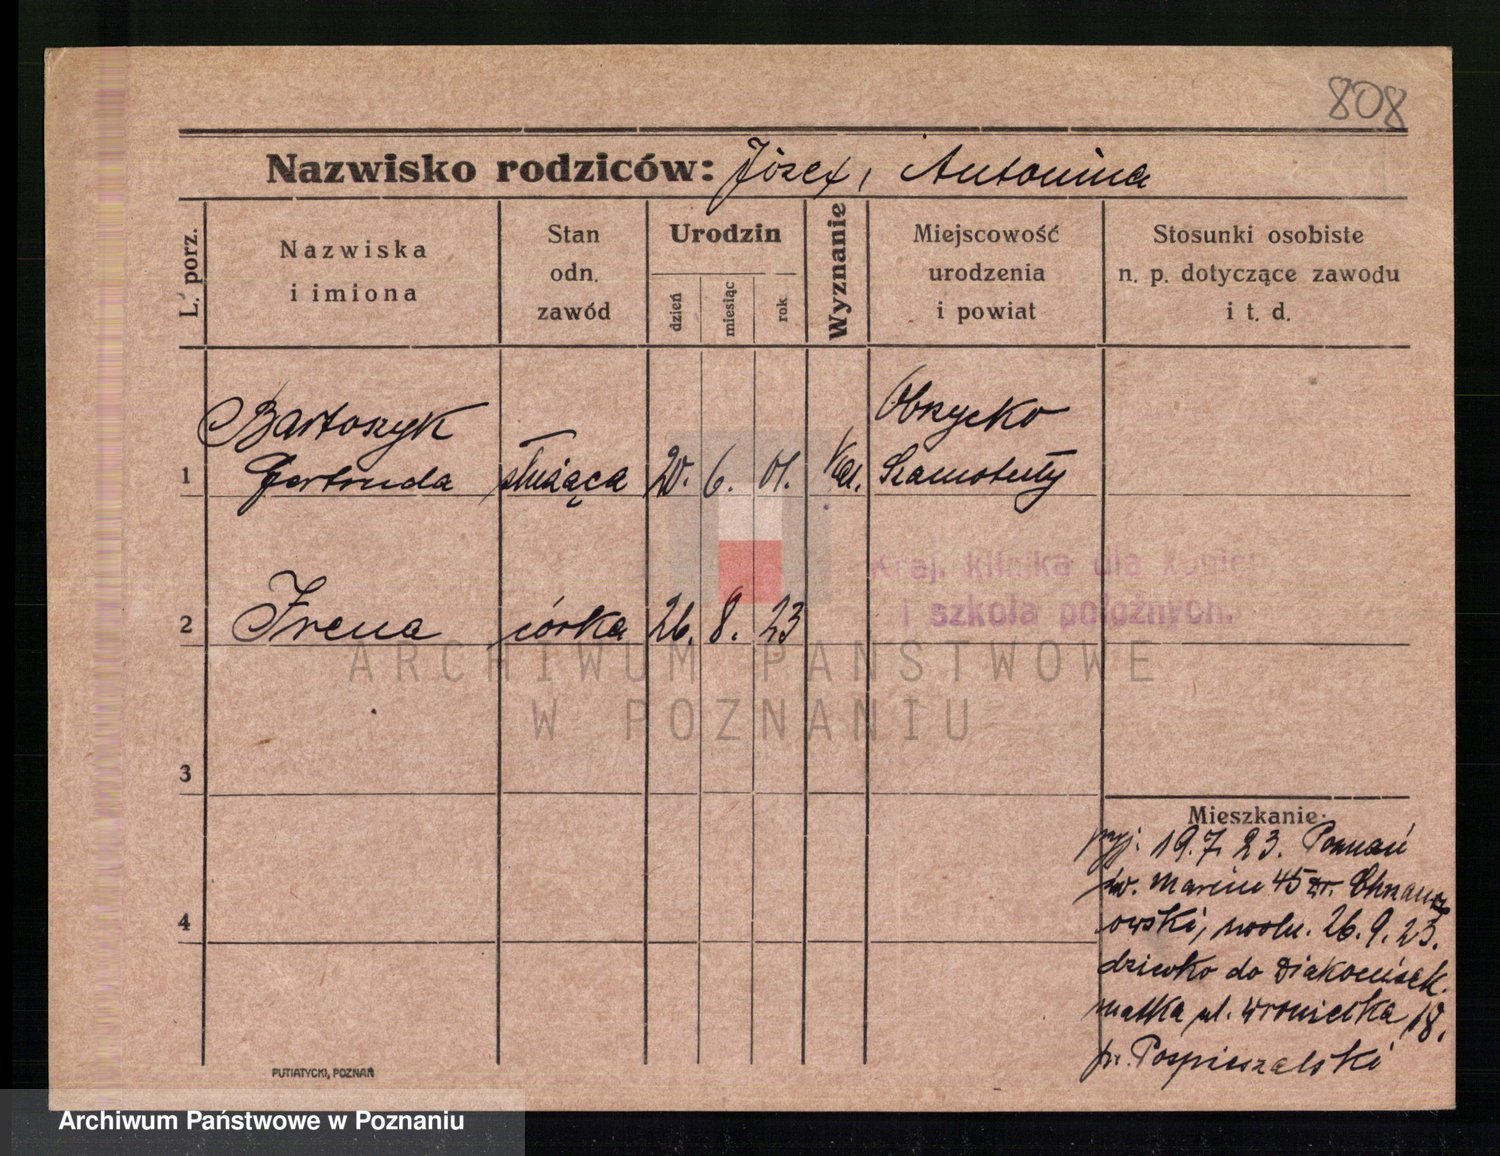 808
Nazwisko rodziców: Józef, Antonina
L. porz.
Nazwiska
i imiona
Stan
odn.
zawód
Urodzin
dzień
miesiąc
rok
Wyznanie
Miejscowość
urodzenia
i powiat
Stosunki osobiste
n. p. dotyczące zawodu
i t. d.
Bartoszyk Obrzycko
1 Gertruda służąca 20. 6. 01. Kat. Szamotuły
Kraj. klinika dla kobiet
i szkoła położnych.
2 Irena córka 26. 8. 23
ARCHIWUM PAŃSTWOWE
W POZNANIU
3
Mieszkanie:
przyj. 19.7.23. Poznań
św. Marcin 45 Chrzanow
owski, 26.9.23.
4
dziewko do Diakonisek.
matka ul. Wroniecka 18.
pr. Pospieszalski
PUTIATYCKI, POZNAŃ
Archiwum Państwowe w Poznaniu